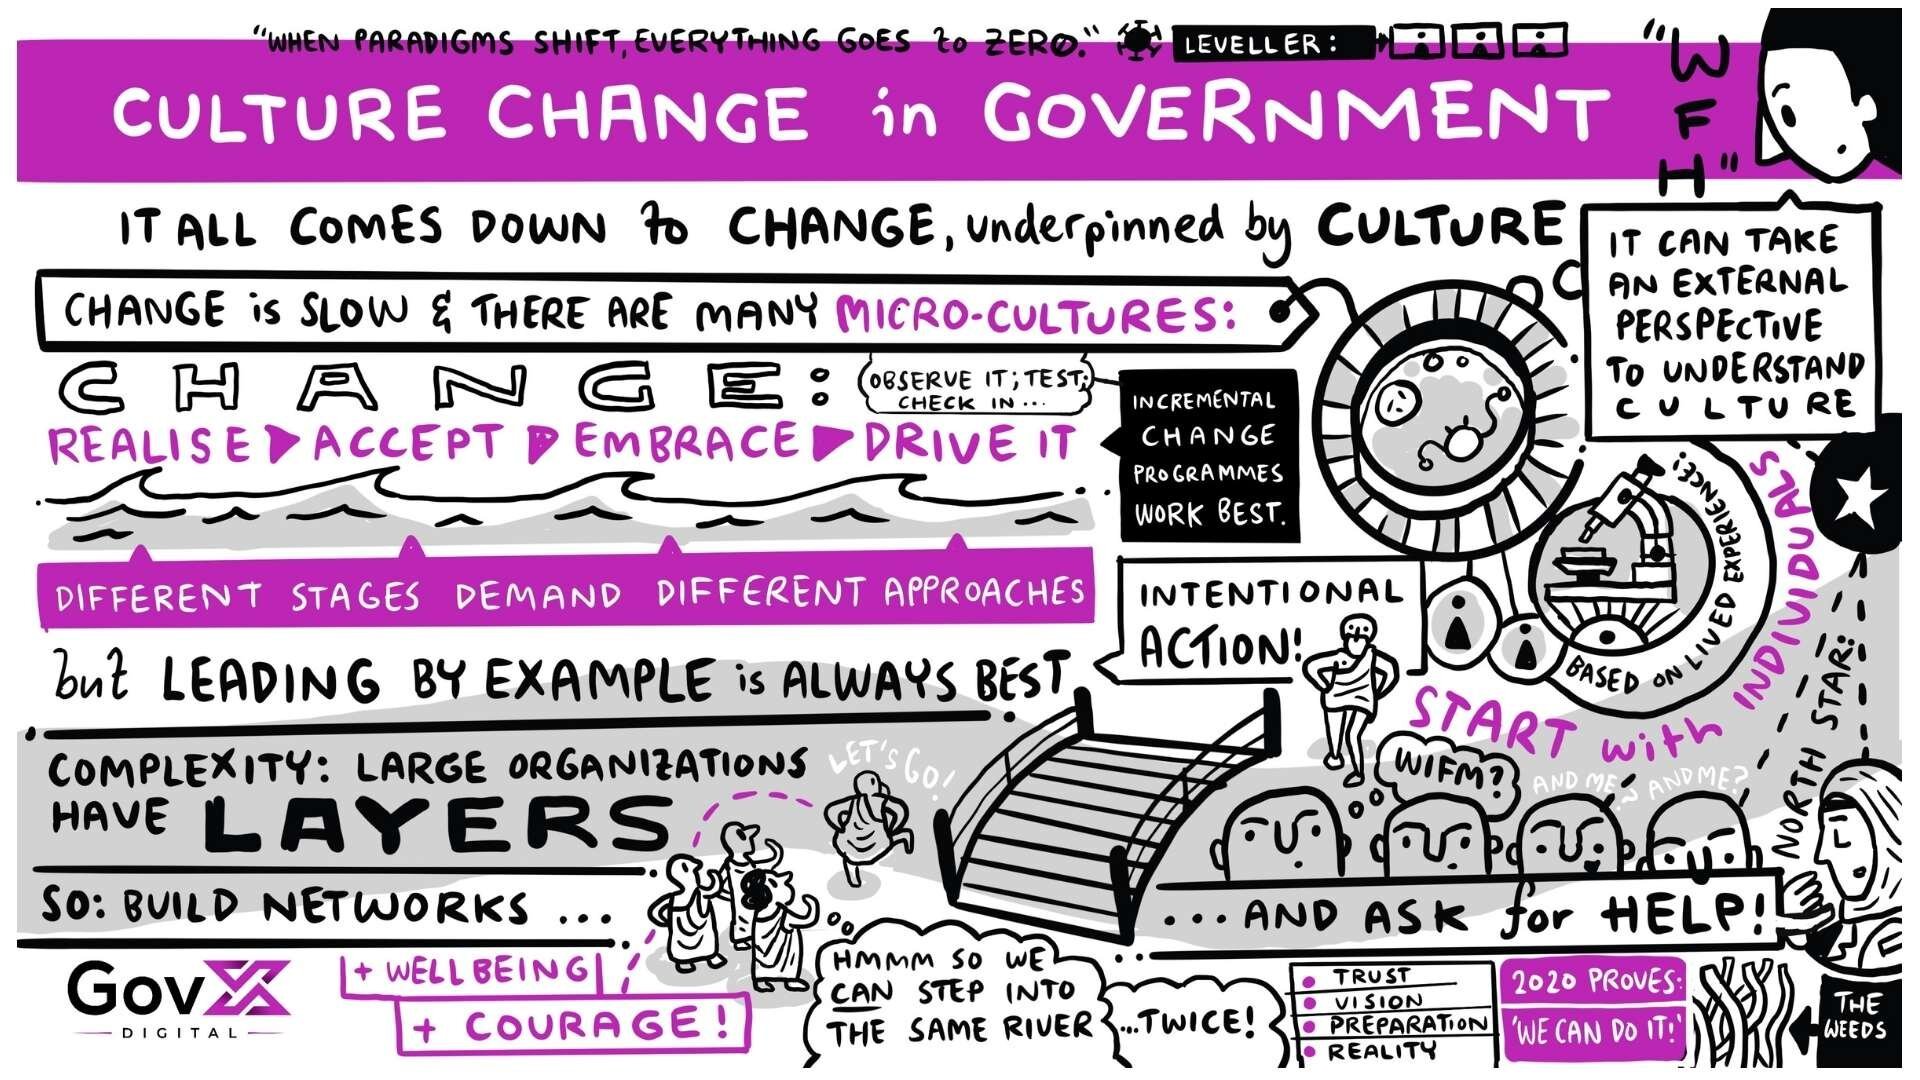 "WHEN PARADIGMS SHIFT, EVERYTHING GOES to ZERO."
LEVELLER:
CULTURE CHANGE in GOVERNMENT
"WFH"
IT ALL COMES DOWN to CHANGE, underpinned by CULTURE
IT CAN TAKE
AN EXTERNAL
PERSPECTIVE
TO UNDERSTAND
CULTURE
CHANGE is SLOW & THERE ARE MANY MICRO-CULTURES:
CHANGE:
OBSERVE IT; TEST;
CHECK IN...
REALISE ACCEPT EMBRACE DRIVE IT
INCREMENTAL
CHANGE
PROGRAMMES
WORK BEST.
DIFFERENT STAGES DEMAND DIFFERENT APPROACHES
INTENTIONAL
ACTION!
BASED ON LIVED EXPERIENCE!
START with INDIVIDUALS
NORTH STAR:
but LEADING BY EXAMPLE is ALWAYS BEST
COMPLEXITY: LARGE ORGANIZATIONS
HAVE LAYERS
LET'S GO!
WIFM?
AND ME?
AND ME?
SO: BUILD NETWORKS ...
... AND ASK for HELP!
GovX
DIGITAL
+ WELLBEING
+ COURAGE!
HMMM SO WE
CAN STEP INTO
THE SAME RIVER
...TWICE!
TRUST
VISION
PREPARATION
REALITY
2020 PROVES:
'WE CAN DO IT!'
THE
WEEDS